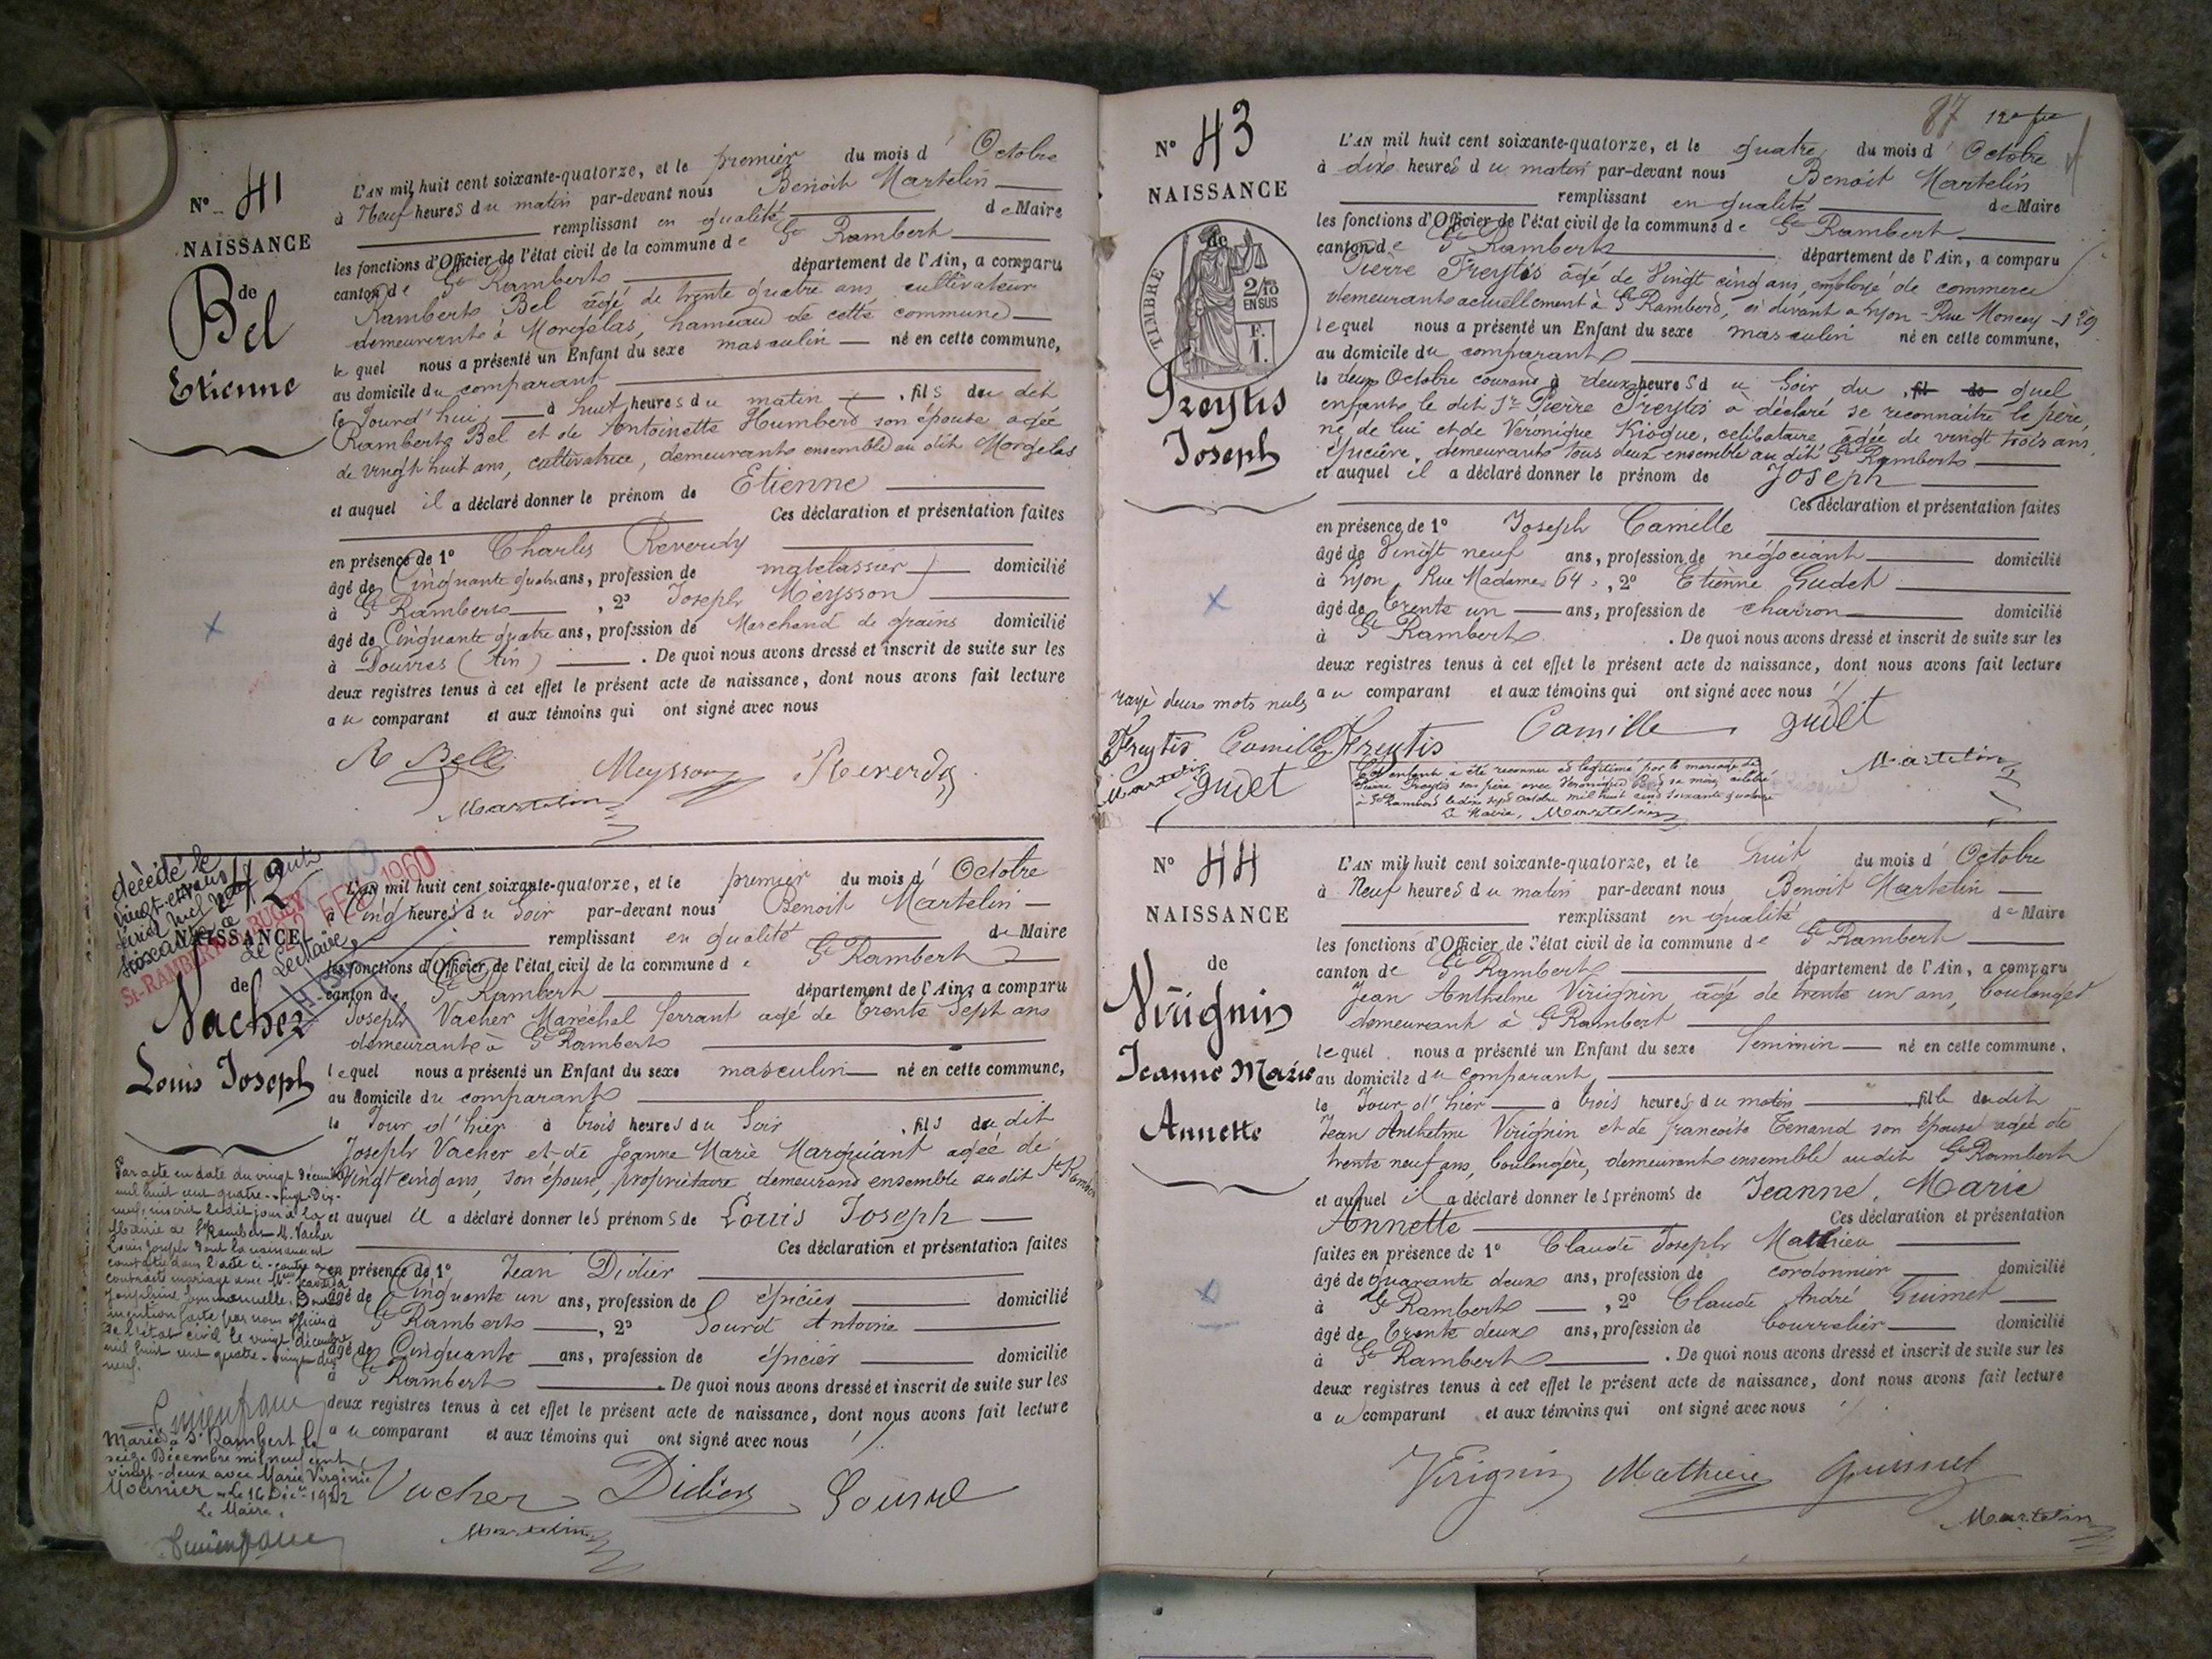 N° 41
NAISSANCE
de
Bel
Etienne
L'AN mil huit cent soixante-quatorze, et le premier du mois d' Octobre
à Neuf heures du matin par-devant nous Benoit Martelin
remplissant en qualité de Maire
les fonctions d'Officier de l'état civil de la commune de St Rambert
canton de St Rambert département de l'Ain, a comparu
Rambert Bel âgé de trente quatre ans cultivateur
demeurant à Morgelas, hameau de cette commune
lequel nous a présenté un Enfant du sexe masculin né en cette commune,
au domicile du comparant
le Jourd'hui à huit heures du matin , fils du dit
Rambert Bel et de Antoinette Humbert son épouse agée
de vingt huit ans, cultivatrice, demeurant ensemble au dit Morgelas
et auquel il a déclaré donner le prénom de Etienne
Ces déclaration et présentation faites
en présence de 1° Charles Reverdy
âgé de Cinquante quatre ans, profession de matelassier domicilié
à St Rambert , 2° Joseph Meysson
âgé de Cinquante quatre ans, profession de Marchand de grains domicilié
à Douvres (Ain) . De quoi nous avons dressé et inscrit de suite sur les
deux registres tenus à cet effet le présent acte de naissance, dont nous avons fait lecture
au comparant et aux témoins qui ont signé avec nous
R Bel Meysson Reverdy
Martelin
décédé le
vingt-et-un
février mil neuf cent
soixante à
St-RAMBERT-en-BUGEY
FEV 1960
Le
42
NAISSANCE
de
Vacher
Louis Joseph
L'AN mil huit cent soixante-quatorze, et le premier du mois d' Octobre
à Cinq heures du Soir par-devant nous Benoit Martelin
remplissant en qualité de Maire
les fonctions d'Officier de l'état civil de la commune de St Rambert
canton de St Rambert département de l'Ain, a comparu
Joseph Vacher Maréchal ferrant agé de trente sept ans
demeurant à St Rambert
lequel nous a présenté un Enfant du sexe masculin né en cette commune,
au domicile du comparant
le Jour d'hier à trois heures du Soir , fils du dit
Joseph Vacher et de Jeanne Marie Marquiant agée de
Vingt cinq ans, son épouse, propriétaire demeurant ensemble au dit St Rambert
et auquel il a déclaré donner les prénoms de Louis Joseph
Ces déclaration et présentation faites
en présence de 1° Jean Didier
âgé de Cinquante un ans, profession de épicier domicilié
à St Rambert , 2° Sourd Antoine
âgé de Cinquante ans, profession de épicier domicilié
à St Rambert . De quoi nous avons dressé et inscrit de suite sur les
deux registres tenus à cet effet le présent acte de naissance, dont nous avons fait lecture
au comparant et aux témoins qui ont signé avec nous
Vacher Didier Sourd
Martelin
Par acte en date du vingt décembre
mil huit cent quatre-vingt-dix-
neuf, inscrit ledit jour à la
Mairie de St Rambert M. Vacher
Louis Joseph dont la naissance est
constatée dans l'acte ci-contre a
contracté mariage avec
Joséphine Emmanuelle.
mention faite par nous officier
de l'état civil le vingt décembre
mil huit cent quatre-vingt dix
neuf.
Marié à St Rambert le
seize Décembre mil neuf cent
vingt-deux avec Marie Virginie
Mounier Le 16 Déc. 1922
Le Maire,
87
N° 43
NAISSANCE
de
TIMBRE
2/10
EN SUS
F.
1.
Freytis
Joseph
L'AN mil huit cent soixante-quatorze, et le quatre du mois d' Octobre
à dix heures du matin par-devant nous Benoit Martelin
remplissant en qualité de Maire
les fonctions d'Officier de l'état civil de la commune de St Rambert
canton de St Rambert département de l'Ain, a comparu
Pierre Freytis âgé de Vingt cinq ans, employé de commerce
demeurant actuellement à St Rambert, ci devant à Lyon - Rue Moncey - 129
lequel nous a présenté un Enfant du sexe masculin né en cette commune,
au domicile du comparant
le deux Octobre courant à deux heures du Soir du , fil de quel
enfant le dit Sr Pierre Freytis à déclaré se reconnaitre le père,
né de lui et de Veronique Kioque, celibataire, agée de vingt trois ans,
épicière, demeurants tous deux ensemble au dit St Rambert
et auquel il a déclaré donner le prénom de Joseph
Ces déclaration et présentation faites
en présence de 1° Joseph Camille
âgé de Vingt neuf ans, profession de négociant domicilié
à Lyon, Rue Madame 64 , 2° Etienne Gudet
âgé de trente un ans, profession de charron domicilié
à St Rambert . De quoi nous avons dressé et inscrit de suite sur les
deux registres tenus à cet effet le présent acte de naissance, dont nous avons fait lecture
au comparant et aux témoins qui ont signé avec nous
rayé deux mots nuls
Freytis Camille Freytis Camille gudet
Martelin gudet Martelin
Cet enfant à été reconnu et légitimé par le mariage de
Pierre Freytis son père avec Veronique sa mère, célébré
à St Rambert le dix sept Octobre mil huit cent soixante quatorze
Le Maire, Martelin
N° 44
NAISSANCE
de
Virignin
Jeanne Marie
Annette
L'AN mil huit cent soixante-quatorze, et le huit du mois d' Octobre
à Neuf heures du matin par-devant nous Benoit Martelin
remplissant en qualité de Maire
les fonctions d'Officier de l'état civil de la commune de St Rambert
canton de St Rambert département de l'Ain, a comparu
Jean Anthelme Virignin âgé de trente un ans, boulanger
demeurant à St Rambert
lequel nous a présenté un Enfant du sexe feminin né en cette commune,
au domicile du comparant
le Jour d'hier à trois heures du matin , fille du dit
Jean Anthelme Virignin et de Francoise Tenand son épouse agée de
trente neuf ans, boulangère, demeurant ensemble au dit St Rambert
et auquel il a déclaré donner les prénoms de Jeanne, Marie
Annette Ces déclaration et présentation
faites en présence de 1° Claude Joseph Mathieu
âgé de quarante deux ans, profession de cordonnier domicilié
à St Rambert , 2° Claude André Guimet
âgé de trente deux ans, profession de bourrelier domicilié
à St Rambert . De quoi nous avons dressé et inscrit de suite sur les
deux registres tenus à cet effet le présent acte de naissance, dont nous avons fait lecture
au comparant et aux témoins qui ont signé avec nous
Virignin Mathieu Guimet
Martelin